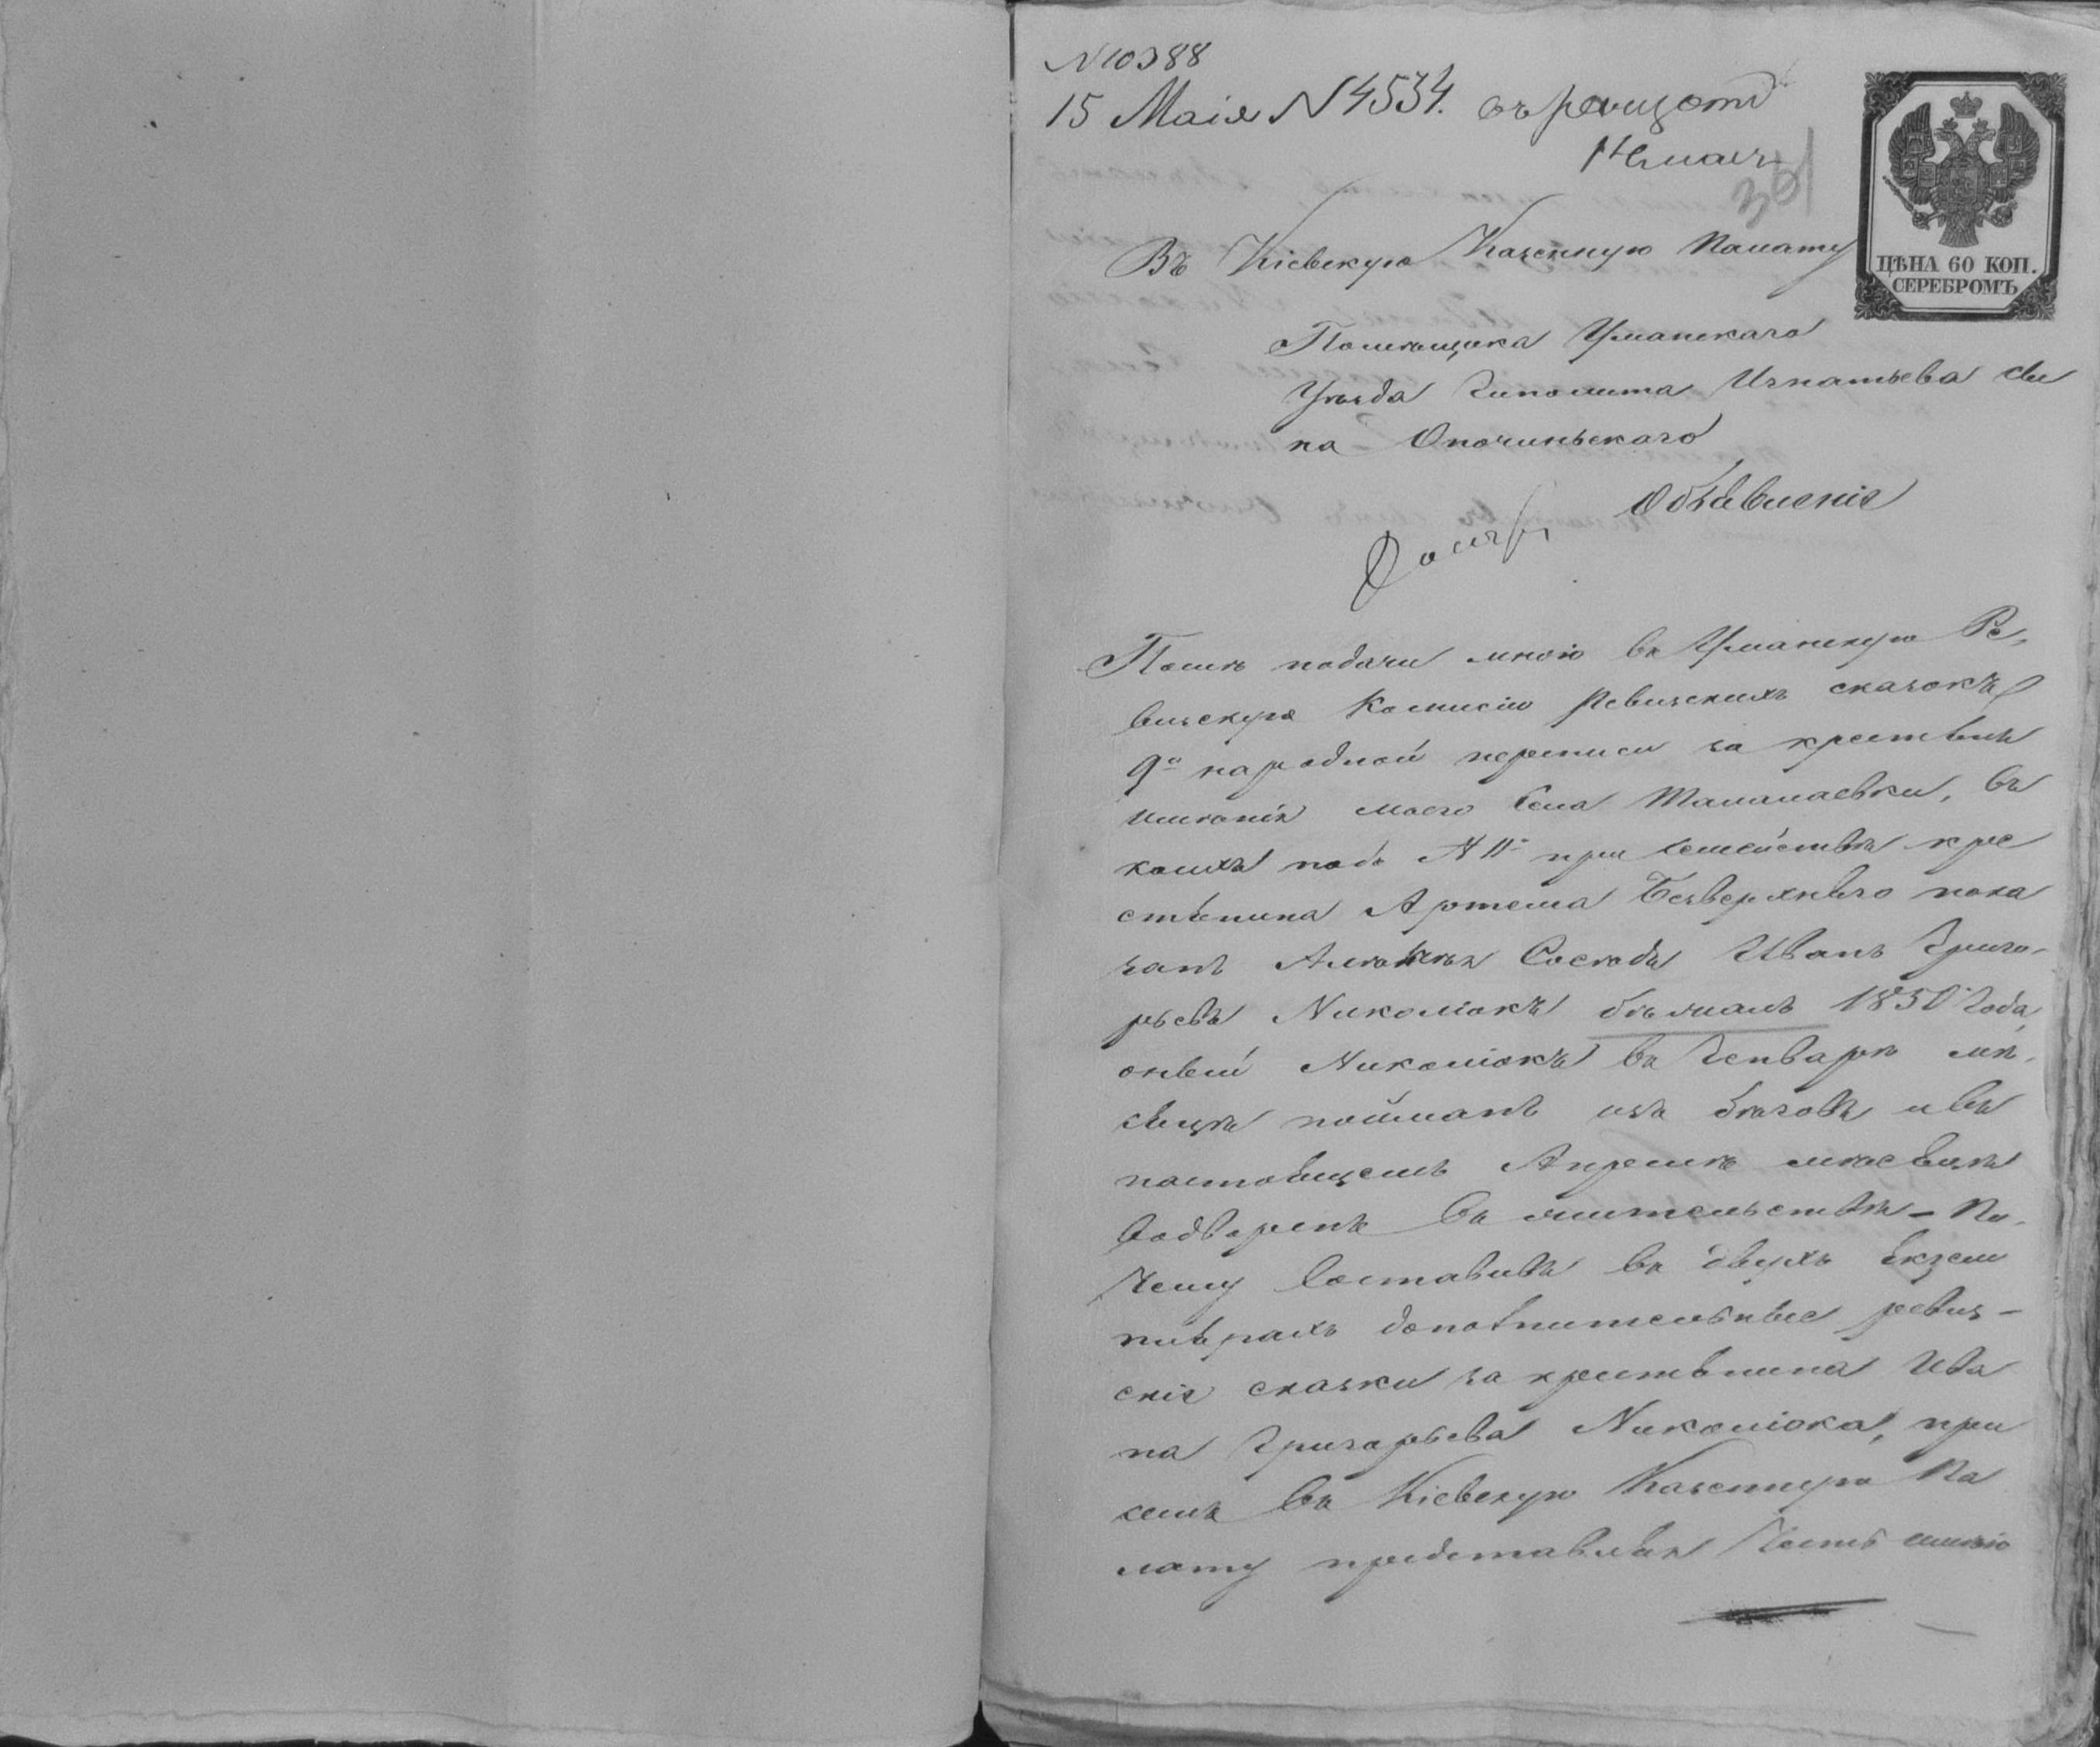 N 10388
15 Маія N 4534.
361
ЦѢНА 60 КОП.
СЕРЕБРОМЪ
Въ Кіевскую Казенную Палату
Помѣщика Уманскаго
Уѣзда Иполита Игнатьева Сы
на Опочиньскаго
Объявленіе
Послѣ подачи мною въ Уманскую Ре,
визскую Комисію Ревизскихъ сказокъ
9й народной переписи за крестьянъ
имѣнія моего Села Таналаевки, въ
коихъ подъ N 11 при семействѣ кре
стьянина Артема Безверхняго пока
занъ Сосѣдъ Иванъ Григо-
рьевъ Николюкъ бѣжалъ 1850 года,
оный Николюкъ въ Генварѣ мѣ,
сяцѣ пойманъ изъ бѣговъ и въ
настоящемъ Апрелѣ мѣсяцѣ
водворенъ въ жительствѣ - По,
чему составивъ въ двухъ екзем
плярахъ дополнительные ревиз-
скіе сказки за крестьянина Ива
на Григорьева Николюка, при
семъ въ Кіевскую Казенную Па
лату представляя Честь имѣю